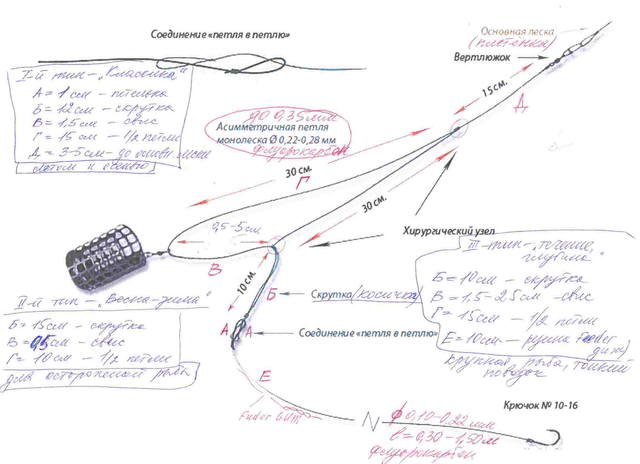 Соединение «петля в петлю»
Основная леска
(плетёнка)
Вертлюжок
15см.
Д
I-й тип - „Классика“
А = 1 см - петелька
Б = 12 см - скрутка
В = 1,5 см - свис
Г = 15 см - 1/2 петли
Д = 3-5 см - до основн. лески
летом и осенью
до 0,35мм
Асимметричная петля
монолеска Ø 0,22-0,28 мм
флуорокарбон
30 см.
Г
30 см.
0,5-5см
В
Хирургический узел
10 см.
Б
Скрутка (косичка)
А
А
Соединение «петля в петлю»
II-й тип - „Весна-зима“
Б = 15 см - скрутка
В = 0,5 см - свис
Г = 10 см - 1/2 петли
для осторожной рыбы
III-тип - „течение,
глубина“
Б = 10 см - скрутка
В = 1,5-2,5 см - свис
Г = 15 см - 1/2 петли
Е = 10 см - резина
крупная рыба, тонкий
поводок
Е
Fuder GUM
Крючок № 10-16
ф 0,10-0,22 мм
l = 0,30-1,50м
флуорокарбон